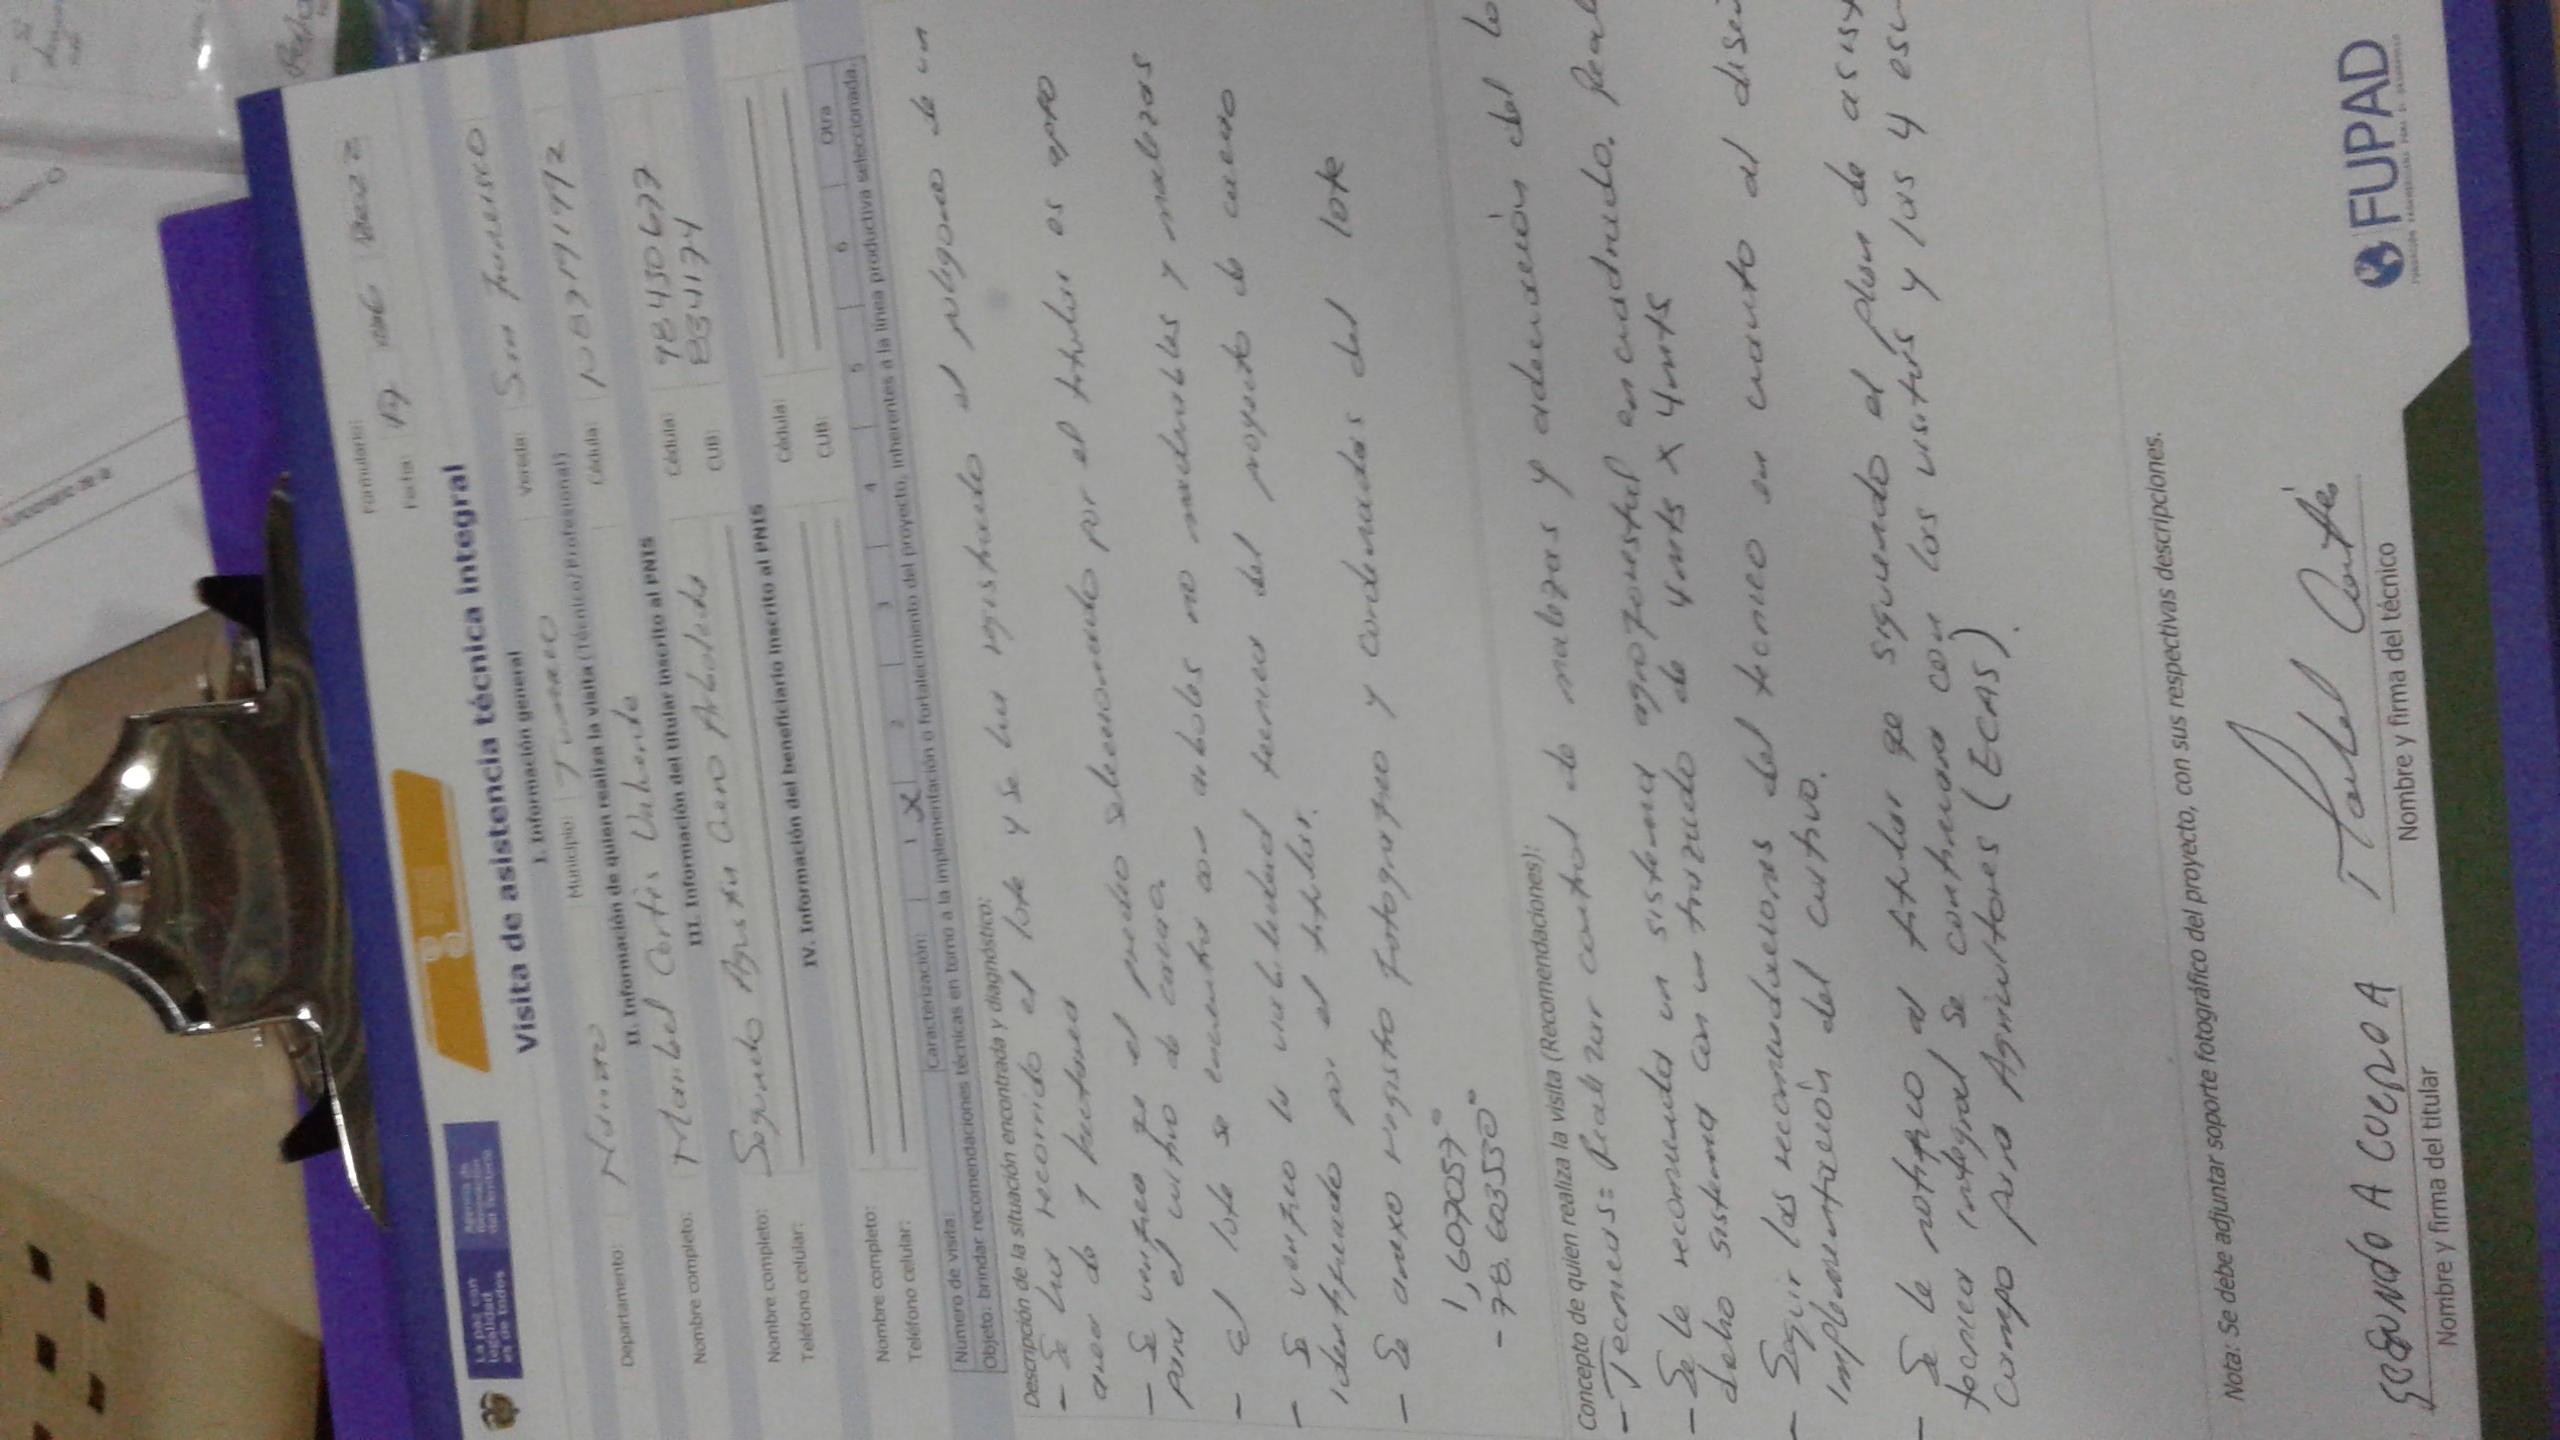 La paz con
legalidad
es de todos
Agencia de
Renovación
del Territorio
Formulario:
Fecha: 19
Visita de asistencia técnica integral
I. Información general
Departamento: Nariño Municipio: Tumaco Vereda: San Francisco
II. Información de quien realiza la visita (Técnico/Profesional)
Nombre completo: Maribel Cortés Valverde Cédula:
III. Información del titular inscrito al PNIS
Nombre completo: Segundo Agustin Cuero Arboleda Cédula: 98430677
Teléfono celular: CUB: 834174
IV. Información del beneficiario inscrito al PNIS
Nombre completo: Cédula:
Teléfono celular: CUB:
Número de visita: Caracterización: 1 X 2 3 4 5 6 Otra
Objeto: brindar recomendaciones técnicas en torno a la implementación o fortalecimiento del proyecto, inherentes a la línea productiva seleccionada.
Descripción de la situación encontrada y diagnóstico:
- Se hes recorrido el lote y se hes registrado el poligono de un
area de 1 hectarea
- Se verifico qe el predio seleccionado por el titular es apto
para el cultivo de cacao.
- El lote se encuentra con arboles no maderables y malezas
- Se verifico la viabilidad tecnica del proyecto de cacao
identificado por el titular.
- Se anexo registro fotografico y cordenadas del lote
1,607057°
-78.603550°
Concepto de quien realiza la visita (Recomendaciones):
- Tecnicas: Realizar control de malezas y adecuación del lo
- Se le recomienda un sistema agroforestal en cuadrado. Real
dicho sistema con un trazado de 4mts x 4mts
- Seguir las recomendaciones del tecnico en cuanto al diseñ
implementación del cultivo.
- Se le notifico al titular qe siguiendo el plan de asist
tecnica integral se continuara con las visitas y las 4 escu
campo para Agricultores (ECAS).
Nota: Se debe adjuntar soporte fotográfico del proyecto, con sus respectivas descripciones.
SEGUNDO A CUERO A
Nombre y firma del titular
Maribel Cortés
Nombre y firma del técnico
FUPAD